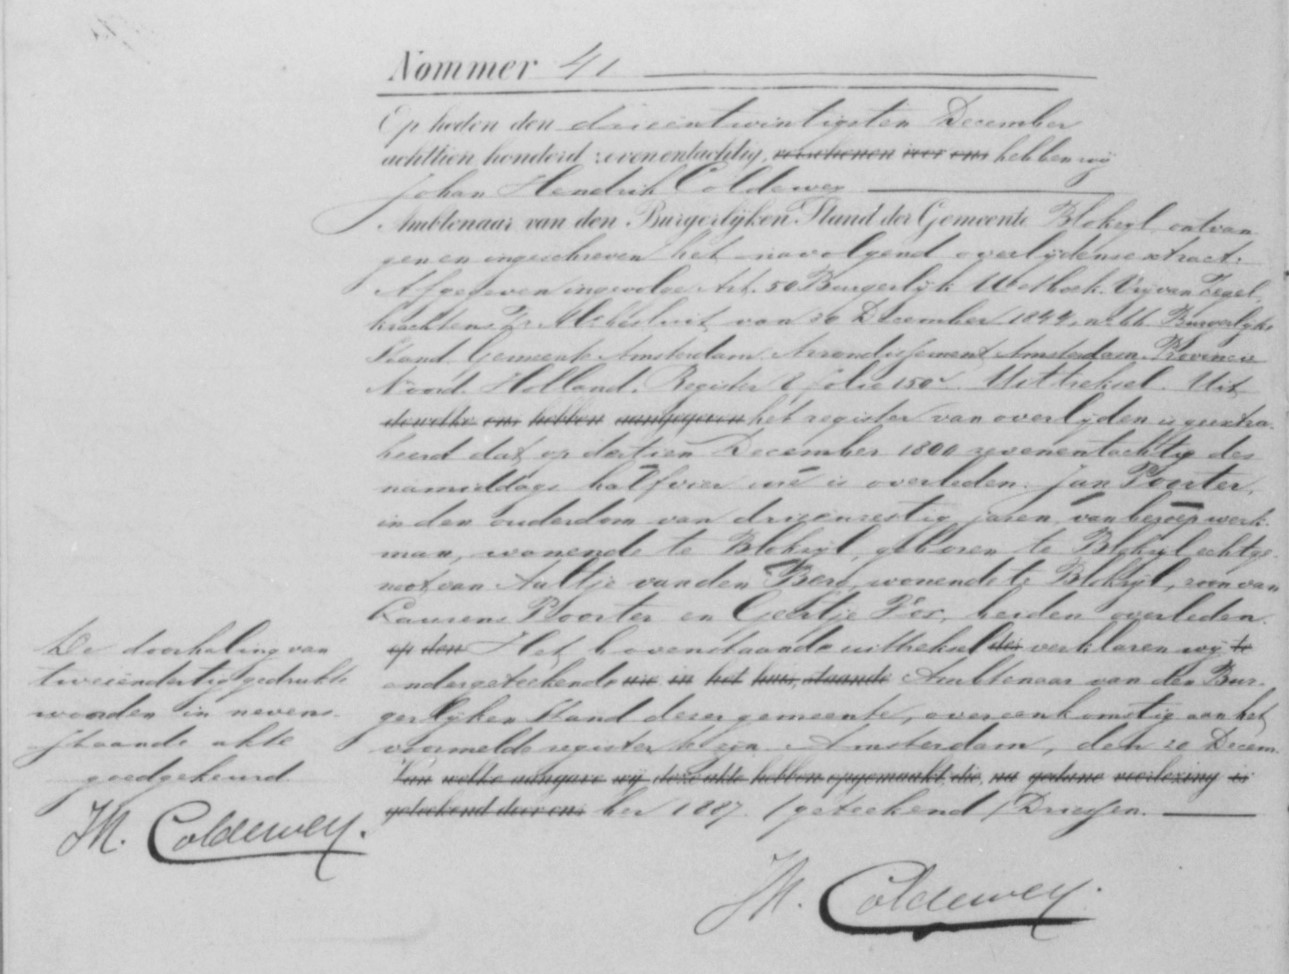 Nommer 41
Op heden den drieëntwintigsten December
achttien honderd zevenentachtig, verschenen voor ons hebben wij
Johan Hendrik Coldewey
Ambtenaar van den Burgerlijken Stand der Gemeente Blokzyl, ontvan-
gen en ingeschreven het navolgend overlijdensextract:
Afgegeven ingevolge Art. 50 Burgerlijk Wetboek. Vrij van Zegel,
krachtens Besluit van 20 December 1844, no. 66 Burgerlijke
Stand. Gemeente Amsterdam. Arrondissement Amsterdam. Provincie
Noord-Holland. Register 8 folio 150. Uittreksel. Uit
dewelke ons hebben aangegeven het register van overlijden is geextra-
heerd dat op dertien December 1800 zevenentachtig des
namiddags half vier ure is overleden: Jan Poorter,
in den ouderdom van drieënzestig jaren, van beroep werk-
man, wonende te Blokzyl, geboren te Blokzyl echtge-
noot van Aaltje van den Berg, wonende te Blokzyl, zoon van
Laurens Poorter en Geertje Vos, beiden overleden.
op den Het bovenstaande uittreksel des verklaren wij te
ondergeteekende ure in het huis, staande Ambtenaar van den Bur-
gerlijken Stand dezer gemeente, overeenkomstig aan het
voormelde register te zijn. Amsterdam, den 20 Decem-
Van welke aangave wij deze akte hebben opgemaakt, die, na gedane voorlezing is
geteekend door ons ber 1887. (geteekend) Driessen.
De doorhaling van
tweeëndertig gedrukte
woorden in nevens-
staande akte
goedgekeurd
JH. Coldewey.
JH. Coldewey.